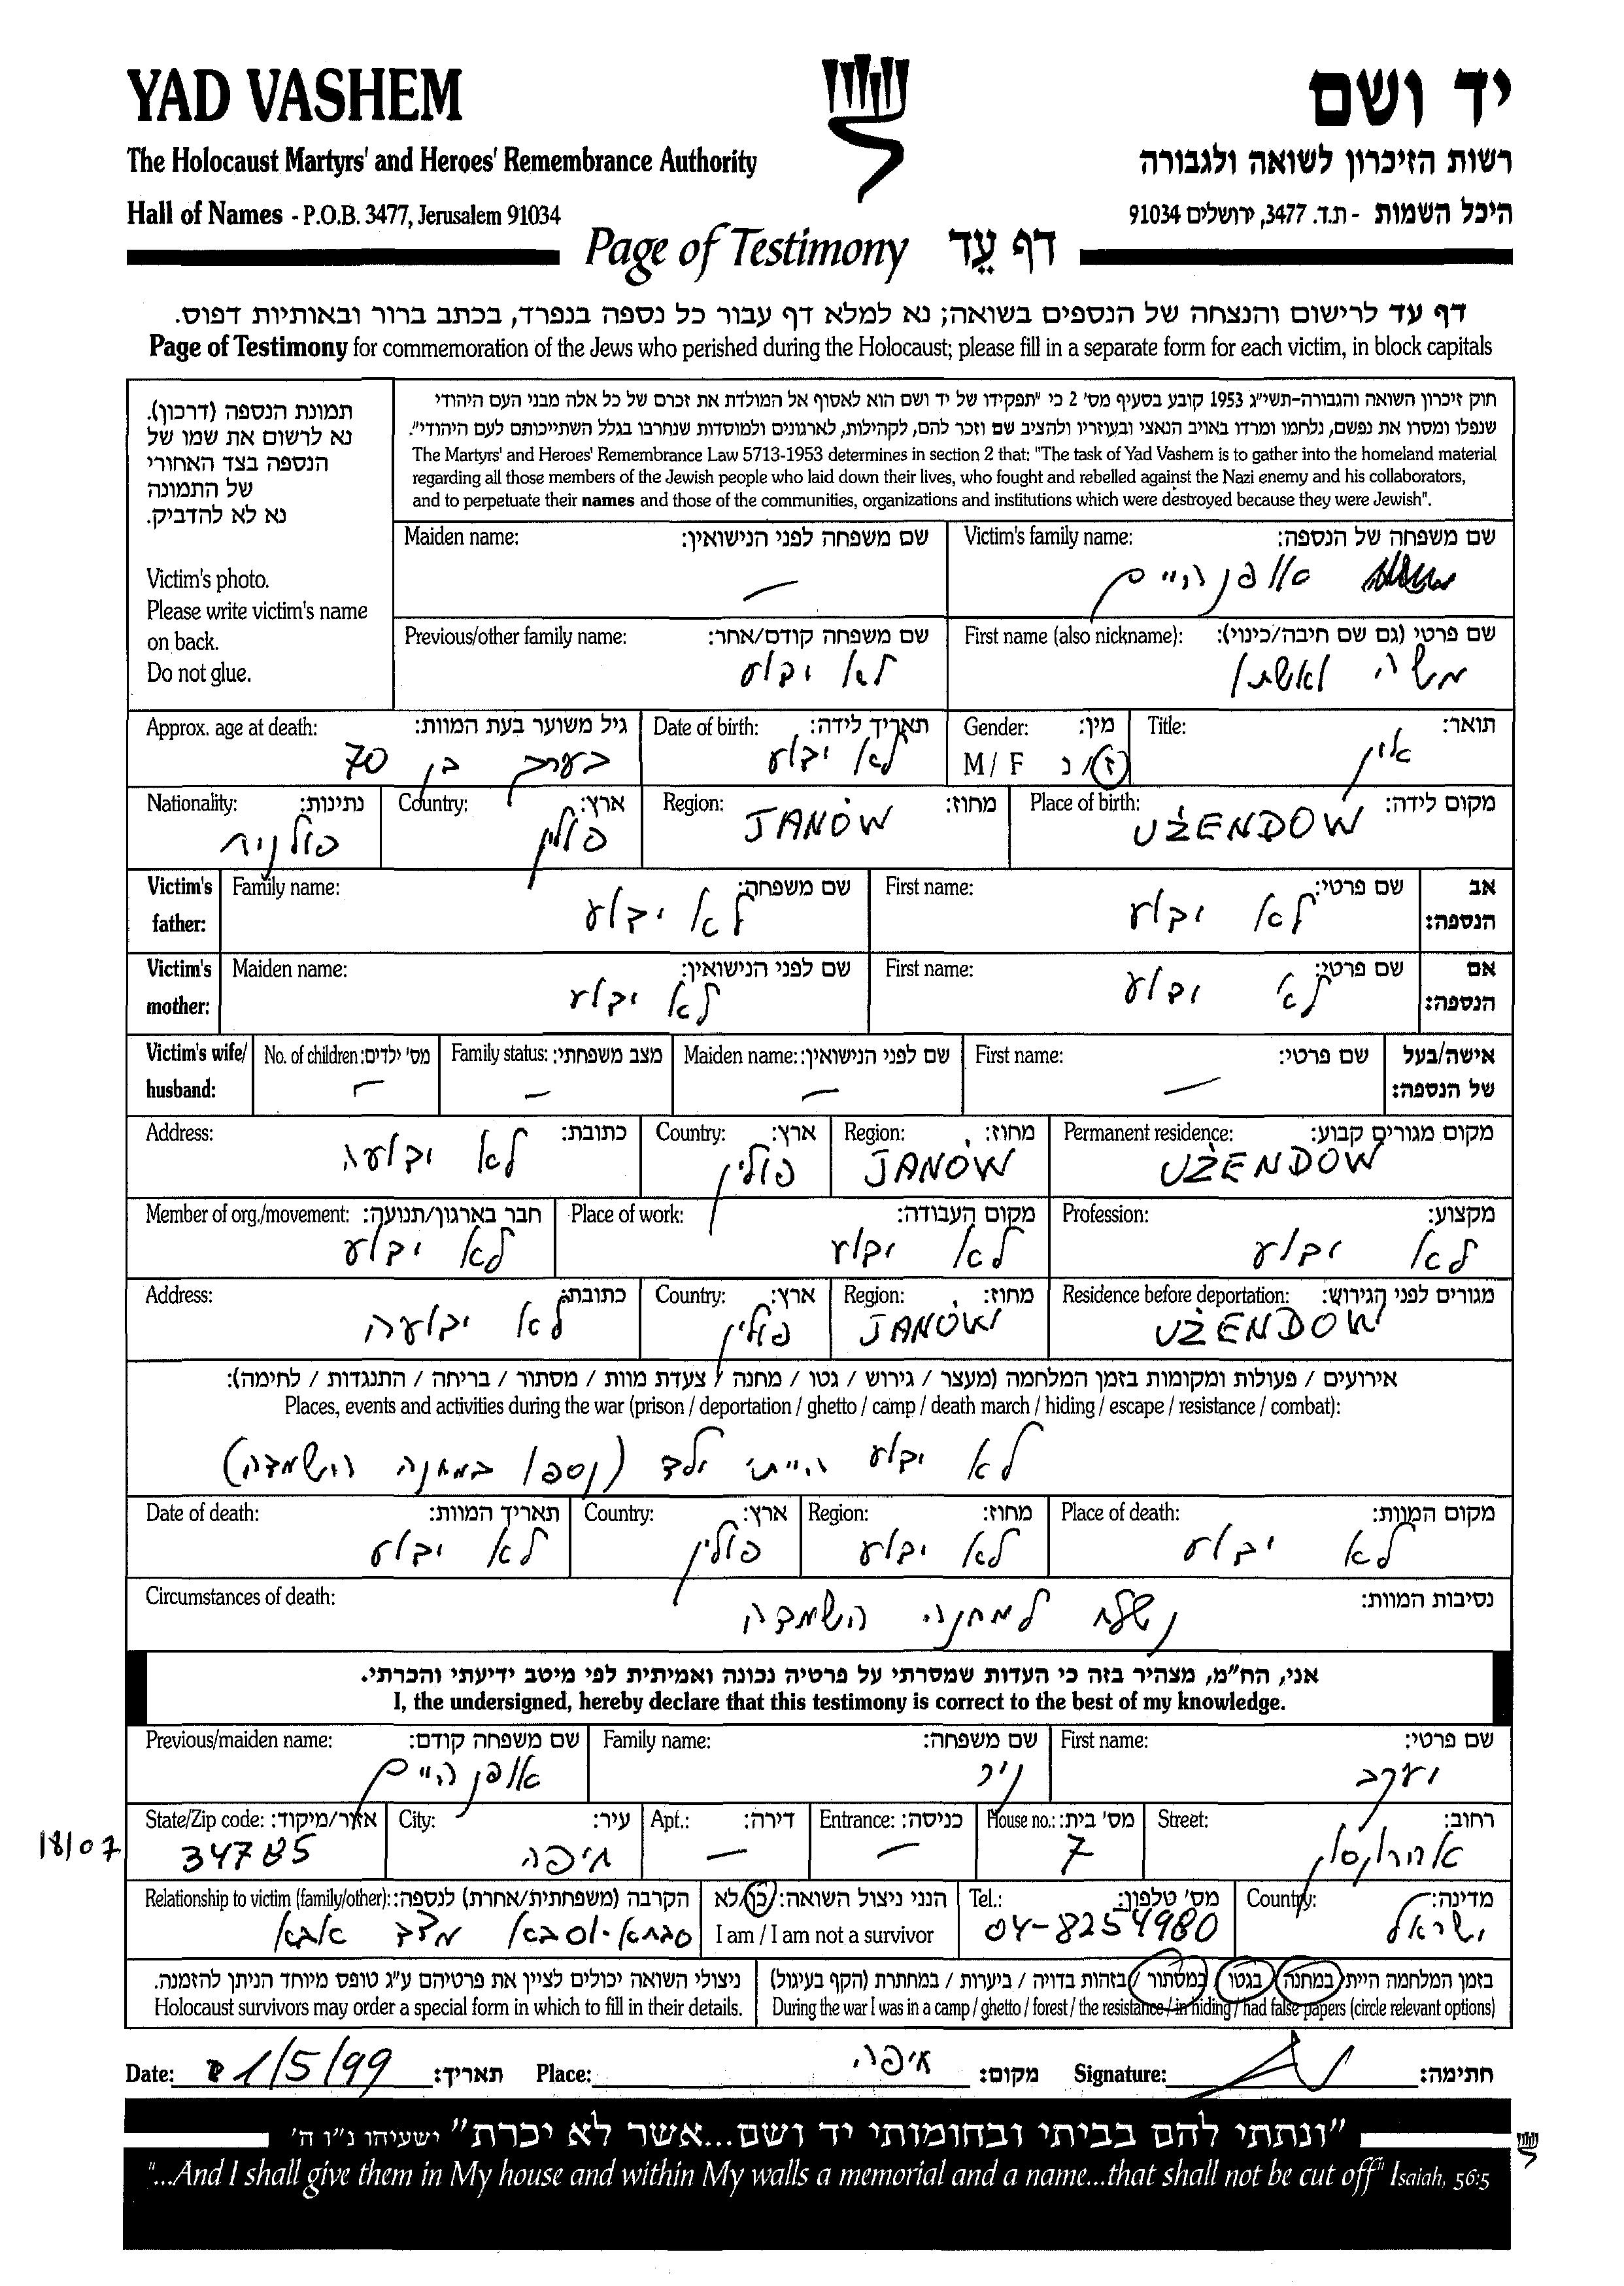 YAD VASHEM
יד ושם
The Holocaust Martyrs' and Heroes' Remembrance Authority
רשות הזיכרון לשואה ולגבורה
Hall of Names - P.O.B. 3477, Jerusalem 91034
היכל השמות - ת.ד. 3477, ירושלים 91034
Page of Testimony דף עֵד
דף עד לרישום והנצחה של הנספים בשואה; נא למלא דף עבור כל נספה בנפרד, בכתב ברור ובאותיות דפוס.
Page of Testimony for commemoration of the Jews who perished during the Holocaust; please fill in a separate form for each victim, in block capitals
תמונת הנספה (דרכון).
נא לרשום את שמו של
הנספה בצד האחורי
של התמונה
נא לא להדביק.
Victim's photo.
Please write victim's name
on back.
Do not glue.
חוק זיכרון השואה והגבורה-תשי"ג 1953 קובע בסעיף מס' 2 כי "תפקידו של יד ושם הוא לאסוף אל המולדת את זכרם של כל אלה מבני העם היהודי
שנפלו ומסרו את נפשם, נלחמו ומרדו באויב הנאצי ובעוזריו ולהציב שם וזכר להם, לקהילות, לארגונים ולמוסדות שנחרבו בגלל השתייכותם לעם היהודי".
The Martyrs' and Heroes' Remembrance Law 5713-1953 determines in section 2 that: "The task of Yad Vashem is to gather into the homeland material
regarding all those members of the Jewish people who laid down their lives, who fought and rebelled against the Nazi enemy and his collaborators,
and to perpetuate their names and those of the communities, organizations and institutions which were destroyed because they were Jewish".
Victim's family name: שם משפחה של הנספה:
אופנהיים
Maiden name: שם משפחה לפני הנישואין:
—
First name (also nickname): שם פרטי (גם שם חיבה/כינוי):
משה ואשתו
Previous/other family name: שם משפחה קודם/אחר:
לא ידוע
Title: תואר:
אין
Gender: מין:
M / F ז/נ
Date of birth: תאריך לידה:
לא ידוע
Approx. age at death: גיל משוער בעת המוות:
בערך בן 70
Place of birth: מקום לידה:
UŻENDOW
Region: מחוז:
JANÓW
Country: ארץ:
פולין
Nationality: נתינות:
פולנית
Victim's father: אב הנספה:
First name: שם פרטי:
לא ידוע
Family name: שם משפחה:
לא ידוע
Victim's mother: אם הנספה:
First name: שם פרטי:
לא ידוע
Maiden name: שם לפני הנישואין:
לא ידוע
Victim's wife/ husband: אישה/בעל של הנספה:
First name: שם פרטי:
—
Maiden name: שם לפני הנישואין:
—
Family status: מצב משפחתי:
—
No. of children: מס' ילדים:
—
Permanent residence: מקום מגורים קבוע:
UŻENDOW
Region: מחוז:
JANÓW
Country: ארץ:
פולין
Address: כתובת:
לא ידועה
Profession: מקצוע:
לא ידוע
Place of work: מקום העבודה:
לא ידוע
Member of org./movement: חבר בארגון/תנועה:
לא ידוע
Residence before deportation: מגורים לפני הגירוש:
UŻENDOW
Region: מחוז:
JANÓW
Country: ארץ:
פולין
Address: כתובת:
לא ידועה
אירועים / פעולות ומקומות בזמן המלחמה (מעצר / גירוש / גטו / מחנה / צעדת מוות / מסתור / בריחה / התנגדות / לחימה):
Places, events and activities during the war (prison / deportation / ghetto / camp / death march / hiding / escape / resistance / combat):
לא ידוע הייתי ילד (נספו במחנה השמדה)
Place of death: מקום המוות:
לא ידוע
Region: מחוז:
לא ידוע
Country: ארץ:
פולין
Date of death: תאריך המוות:
לא ידוע
Circumstances of death: נסיבות המוות:
נשלח למחנה השמדה
אני, הח"מ, מצהיר בזה כי העדות שמסרתי על פרטיה נכונה ואמיתית לפי מיטב ידיעתי והכרתי.
I, the undersigned, hereby declare that this testimony is correct to the best of my knowledge.
First name: שם פרטי:
יעקב
Family name: שם משפחה:
ניר
Previous/maiden name: שם משפחה קודם:
אופנהיים
Street: רחוב:
House no.: מס' בית:
7
Entrance: כניסה:
—
Apt.: דירה:
—
City: עיר:
חיפה
State/Zip code: אזור/מיקוד:
34785
18/07
Country: מדינה:
ישראל
Tel.: מס' טלפון:
04-8254980
הנני ניצול השואה: כן/לא
I am / I am not a survivor
Relationship to victim (family/other): הקרבה (משפחתית/אחרת) לנספה:
סבתא-וסבא מצד אבא
בזמן המלחמה הייתי במחנה / בגטו / במסתור / בזהות בדויה / ביערות / במחתרת (הקף בעיגול)
During the war I was in a camp / ghetto / forest / the resistance / in hiding / had false papers (circle relevant options)
ניצולי השואה יכולים לציין את פרטיהם ע"ג טופס מיוחד הניתן להזמנה.
Holocaust survivors may order a special form in which to fill in their details.
Date: 1/5/99 תאריך: Place: חיפה מקום: Signature: חתימה:
"ונתתי להם בביתי ובחומותי יד ושם...אשר לא יכרת" ישעיהו נ"ו ה'
"...And I shall give them in My house and within My walls a memorial and a name...that shall not be cut off" Isaiah, 56:5